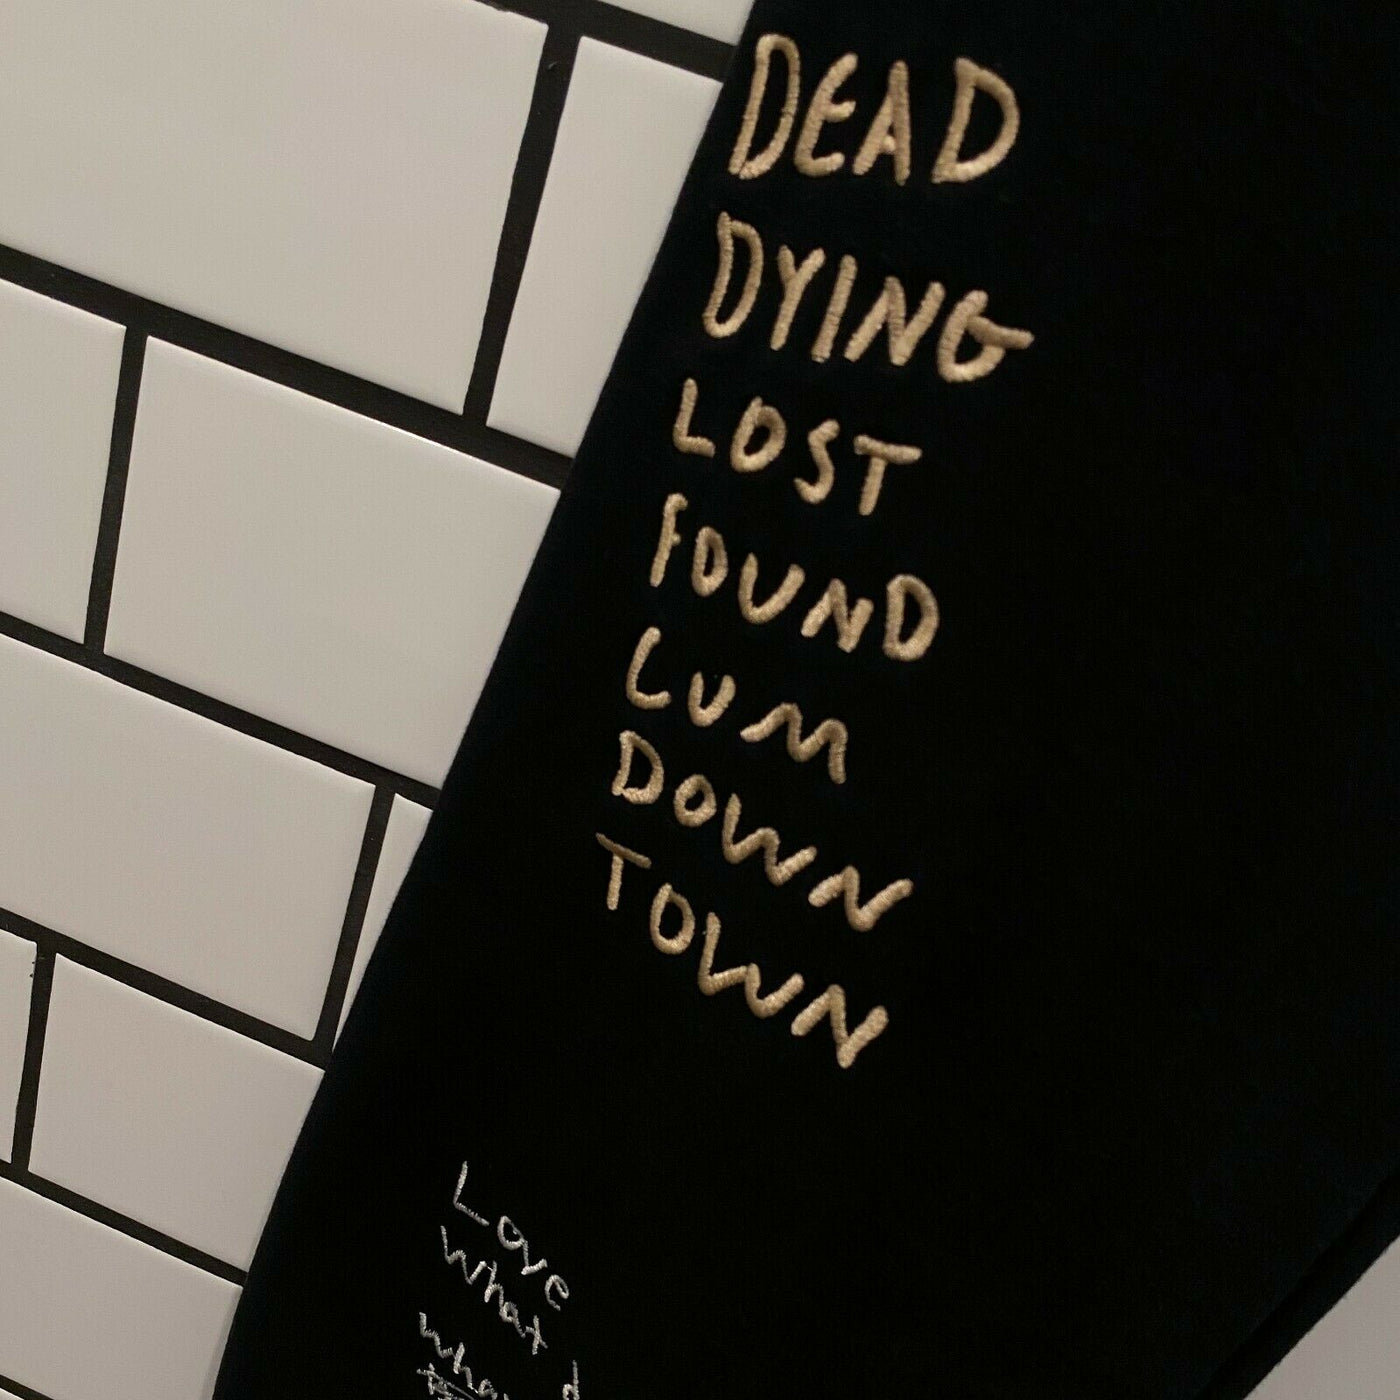 DEAD
DYING
LOST
FOUND
LUM
DOWN
TOWN
Love
What